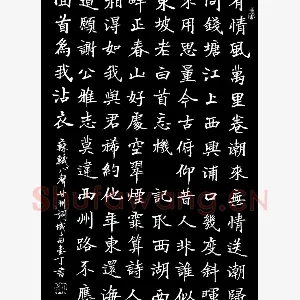 有情風萬里卷潮來無情送潮歸
問錢塘江上西興浦口幾度斜暉
不用思量今古俯仰昔人非誰似
東坡老白首忘機 記取西湖西
畔正春山好處空翠煙霏算詩人
相得如我與君稀約他年東還海
道願謝公雅志莫違西州路不應
回首爲我沾衣
蘇軾八聲甘州詞
Shufawang.CN